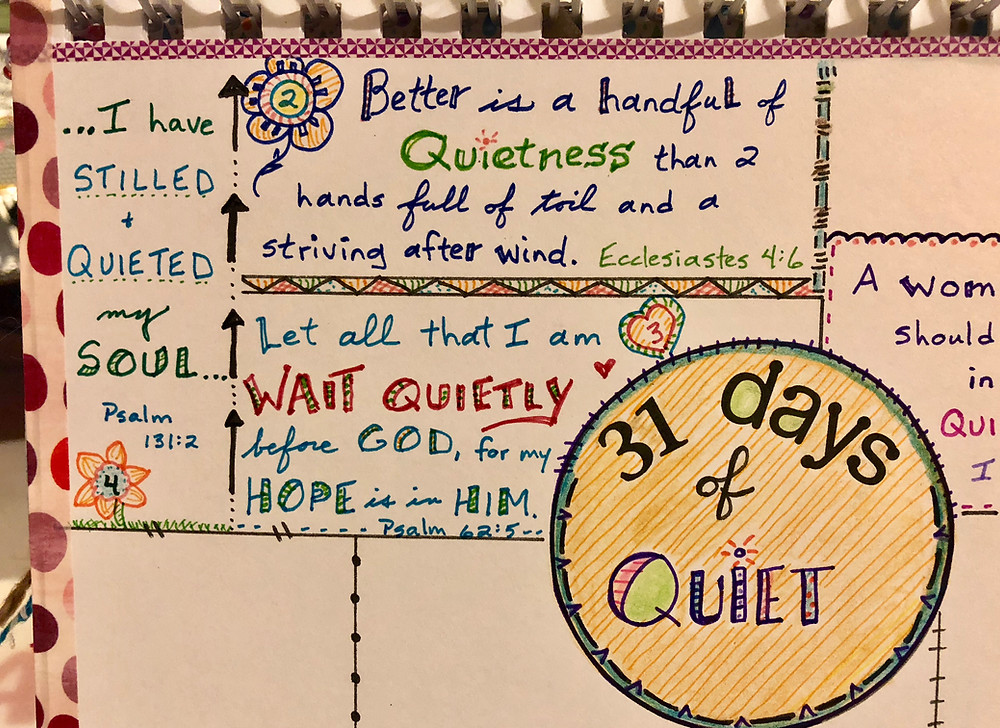 ...I have
STILLED
+
QUIETED
my
SOUL...
Psalm
131:2
4
2
Better is a handful of
Quietness than 2
hands full of toil and a
striving after wind. Ecclesiastes 4:6
Let all that I am
3
WAIT QUIETLY
before GOD, for my
HOPE is in HIM.
Psalm 62:5
31 days
of
QUIET
A wom
should
in
QUI
I